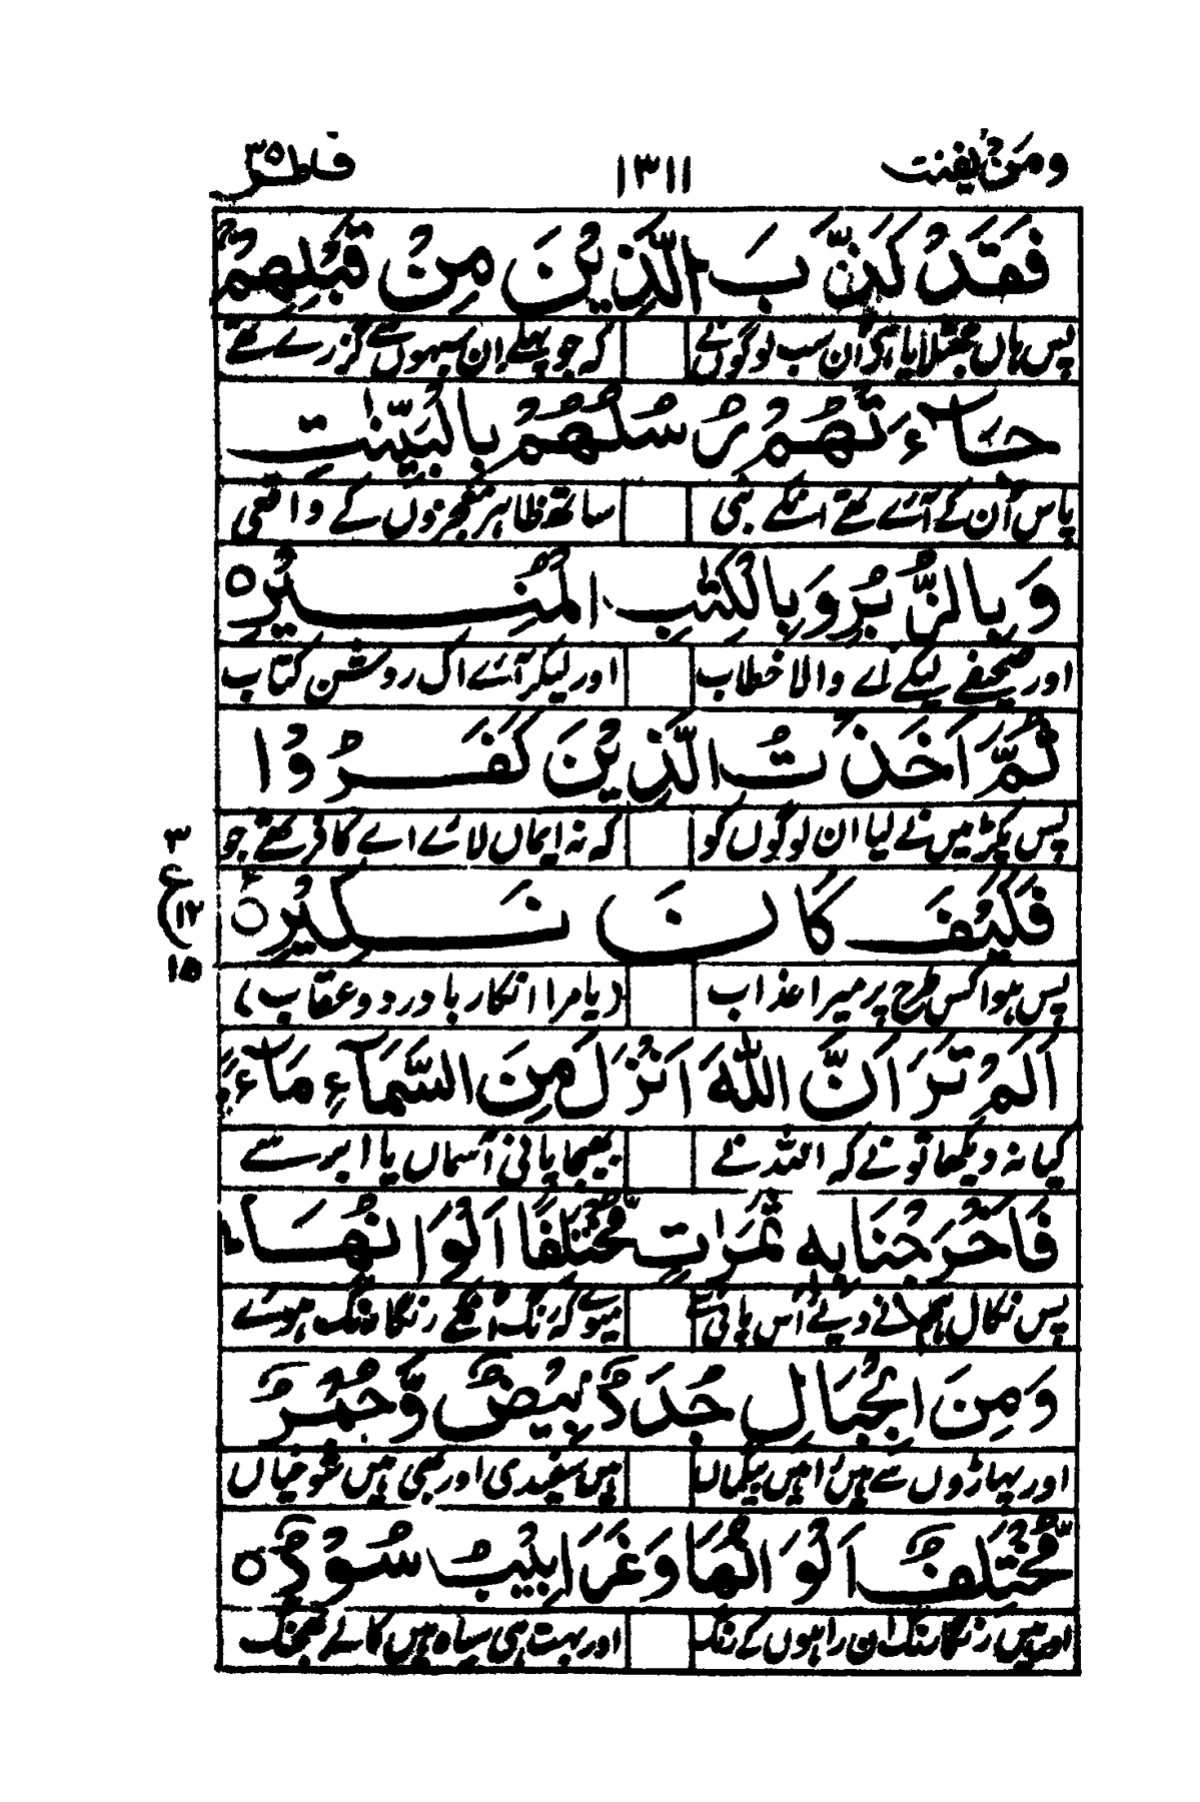 ومن يقنت ١٣١١ فاطر ٣٥
فَقَدْ كَذَّبَ الَّذِيْنَ مِنْ قَبْلِهِمْ
پس ہاں جھٹلایا ہی ان سب لوگوں نے کہ جو پہلے ان سبہوں سے گزرے تھے
جَآءَتْهُمْ رُسُلُهُمْ بِالْبَيِّنٰتِ
پاس ان کے آئے تھے انکے نبی ساتھ ظاہر معجزوں کے واقعی
وَبِالزُّبُرِ وَبِالْكِتٰبِ الْمُنِيْرِ ۝
اور صحیفے لیکے اے والا خطاب اور لیکر آئے اک روشن کتاب
ثُمَّ اَخَذْتُ الَّذِيْنَ كَفَرُوْا
پس پکڑ میں نے لیا ان لوگوں کو کہ نہ ایماں لائے اے کافر تھے جو
فَكَيْفَ كَانَ نَكِيْرِ ۝
٣ ع ١٢ ١٥
پس ہوا کس طرح پر میرا عذاب (یا مرا انکار با درد و عقاب)
اَلَمْ تَرَ اَنَّ اللّٰهَ اَنْزَلَ مِنَ السَّمَآءِ مَآءً
کیا نہ دیکھا تو نے کہ اللہ نے بھیجا پانی آسماں یا ابر سے
فَاَخْرَجْنَا بِهٖ ثَمَرٰتٍ مُّخْتَلِفًا اَلْوَانُهَا
پس نکال ہم نے دیئے اس پانی سے میوے کہ رنگ انکے رنگا رنگ ہوئے
وَمِنَ الْجِبَالِ جُدَدٌۢ بِيْضٌ وَّحُمْرٌ
اور پہاڑوں سے ہیں راہیں ہیں سفیدی اور بھی ہیں سرخیاں
مُّخْتَلِفٌ اَلْوَانُهَا وَغَرَابِيْبُ سُوْدٌ ۝
اور ہیں رنگا رنگ ان راہوں کے رنگ اور بہت ہی سیاہ ہیں کالے بھجنگ